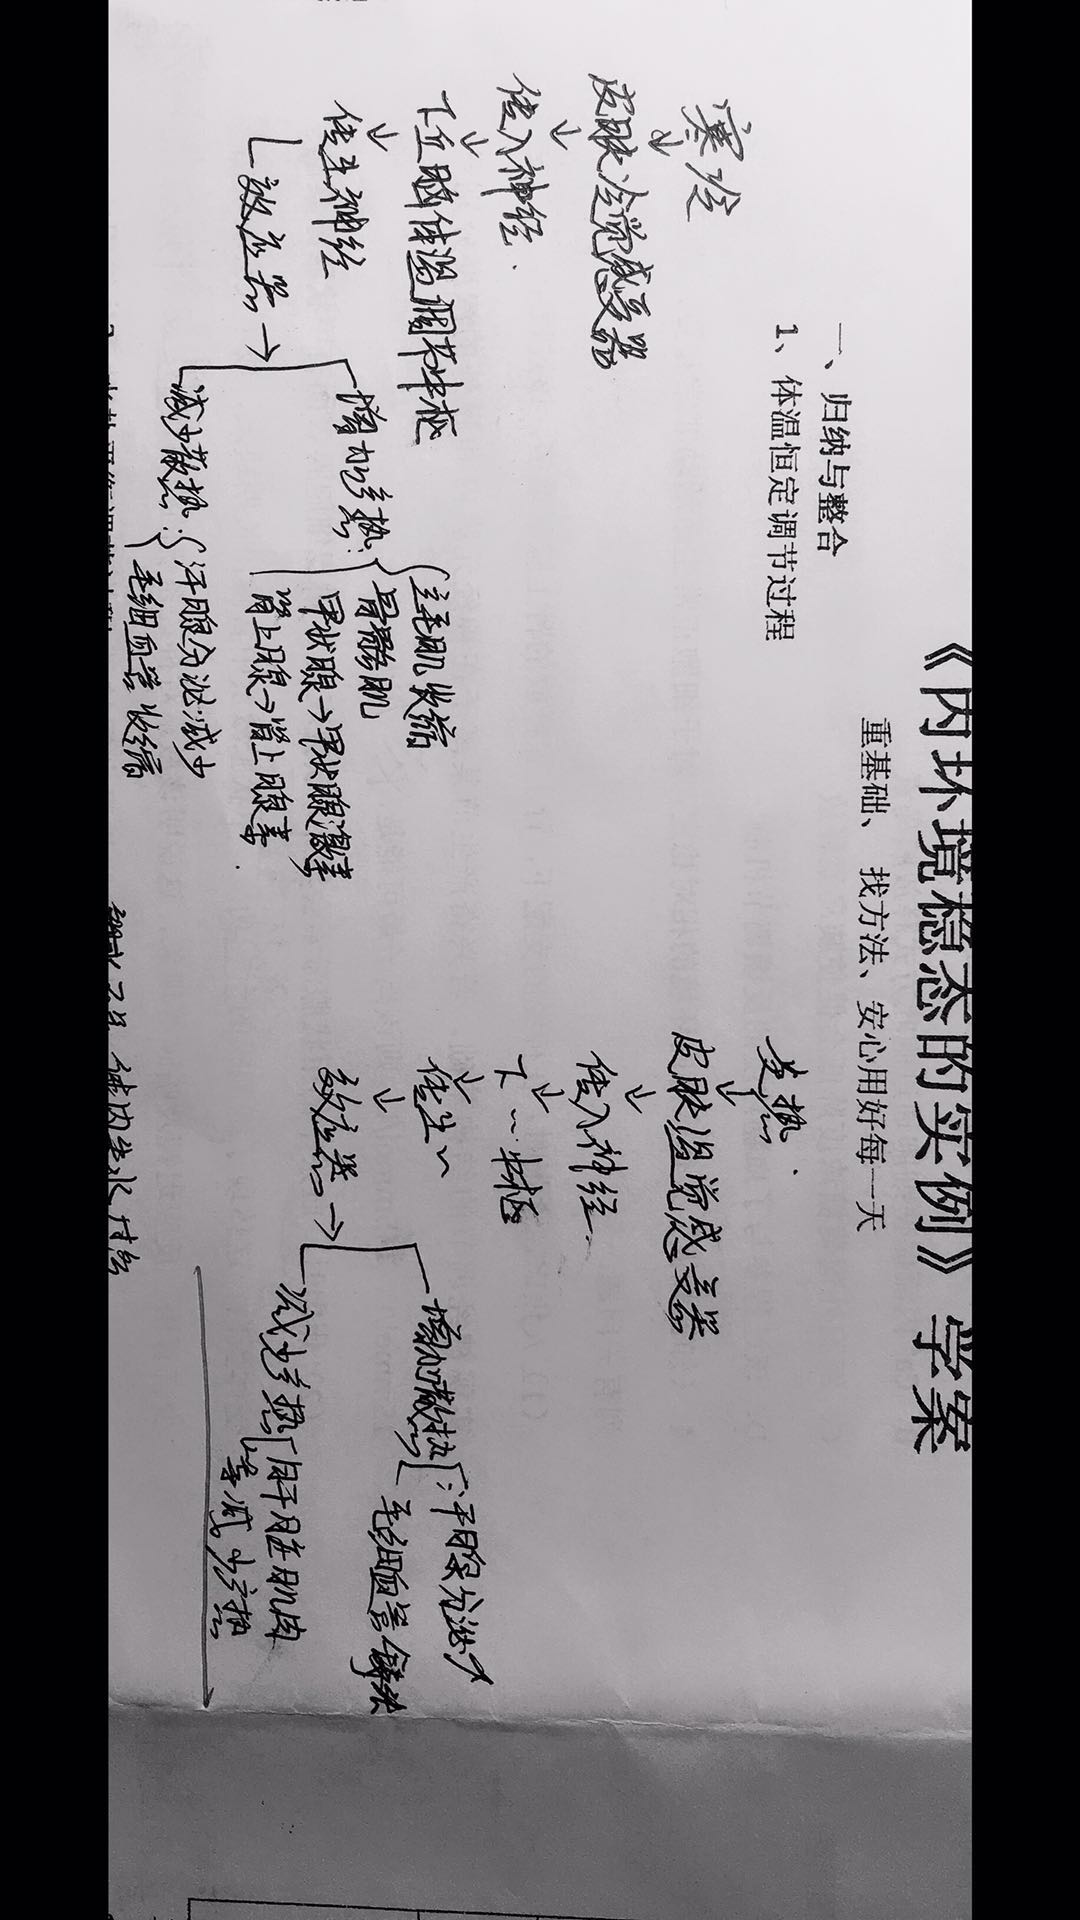 《内环境稳态的实例》学案
重基础、找方法、安心用好每一天
一、归纳与整合
1、体温恒定调节过程
寒冷
↓
皮肤冷觉感受器
↓
传入神经
↓
下丘脑体温调节中枢
↓
传出神经
效应器→
增加产热
立毛肌收缩
骨骼肌
甲状腺→甲状腺激素
肾上腺→肾上腺素
减少散热
汗腺分泌减少
毛细血管收缩
炎热
↓
皮肤温觉感受器
↓
传入神经
↓
下~中枢
↓
传出~
↓
效应器→
增加散热
汗腺分泌
毛细血管舒张
减少产热
肝脏肌肉
等减少产热